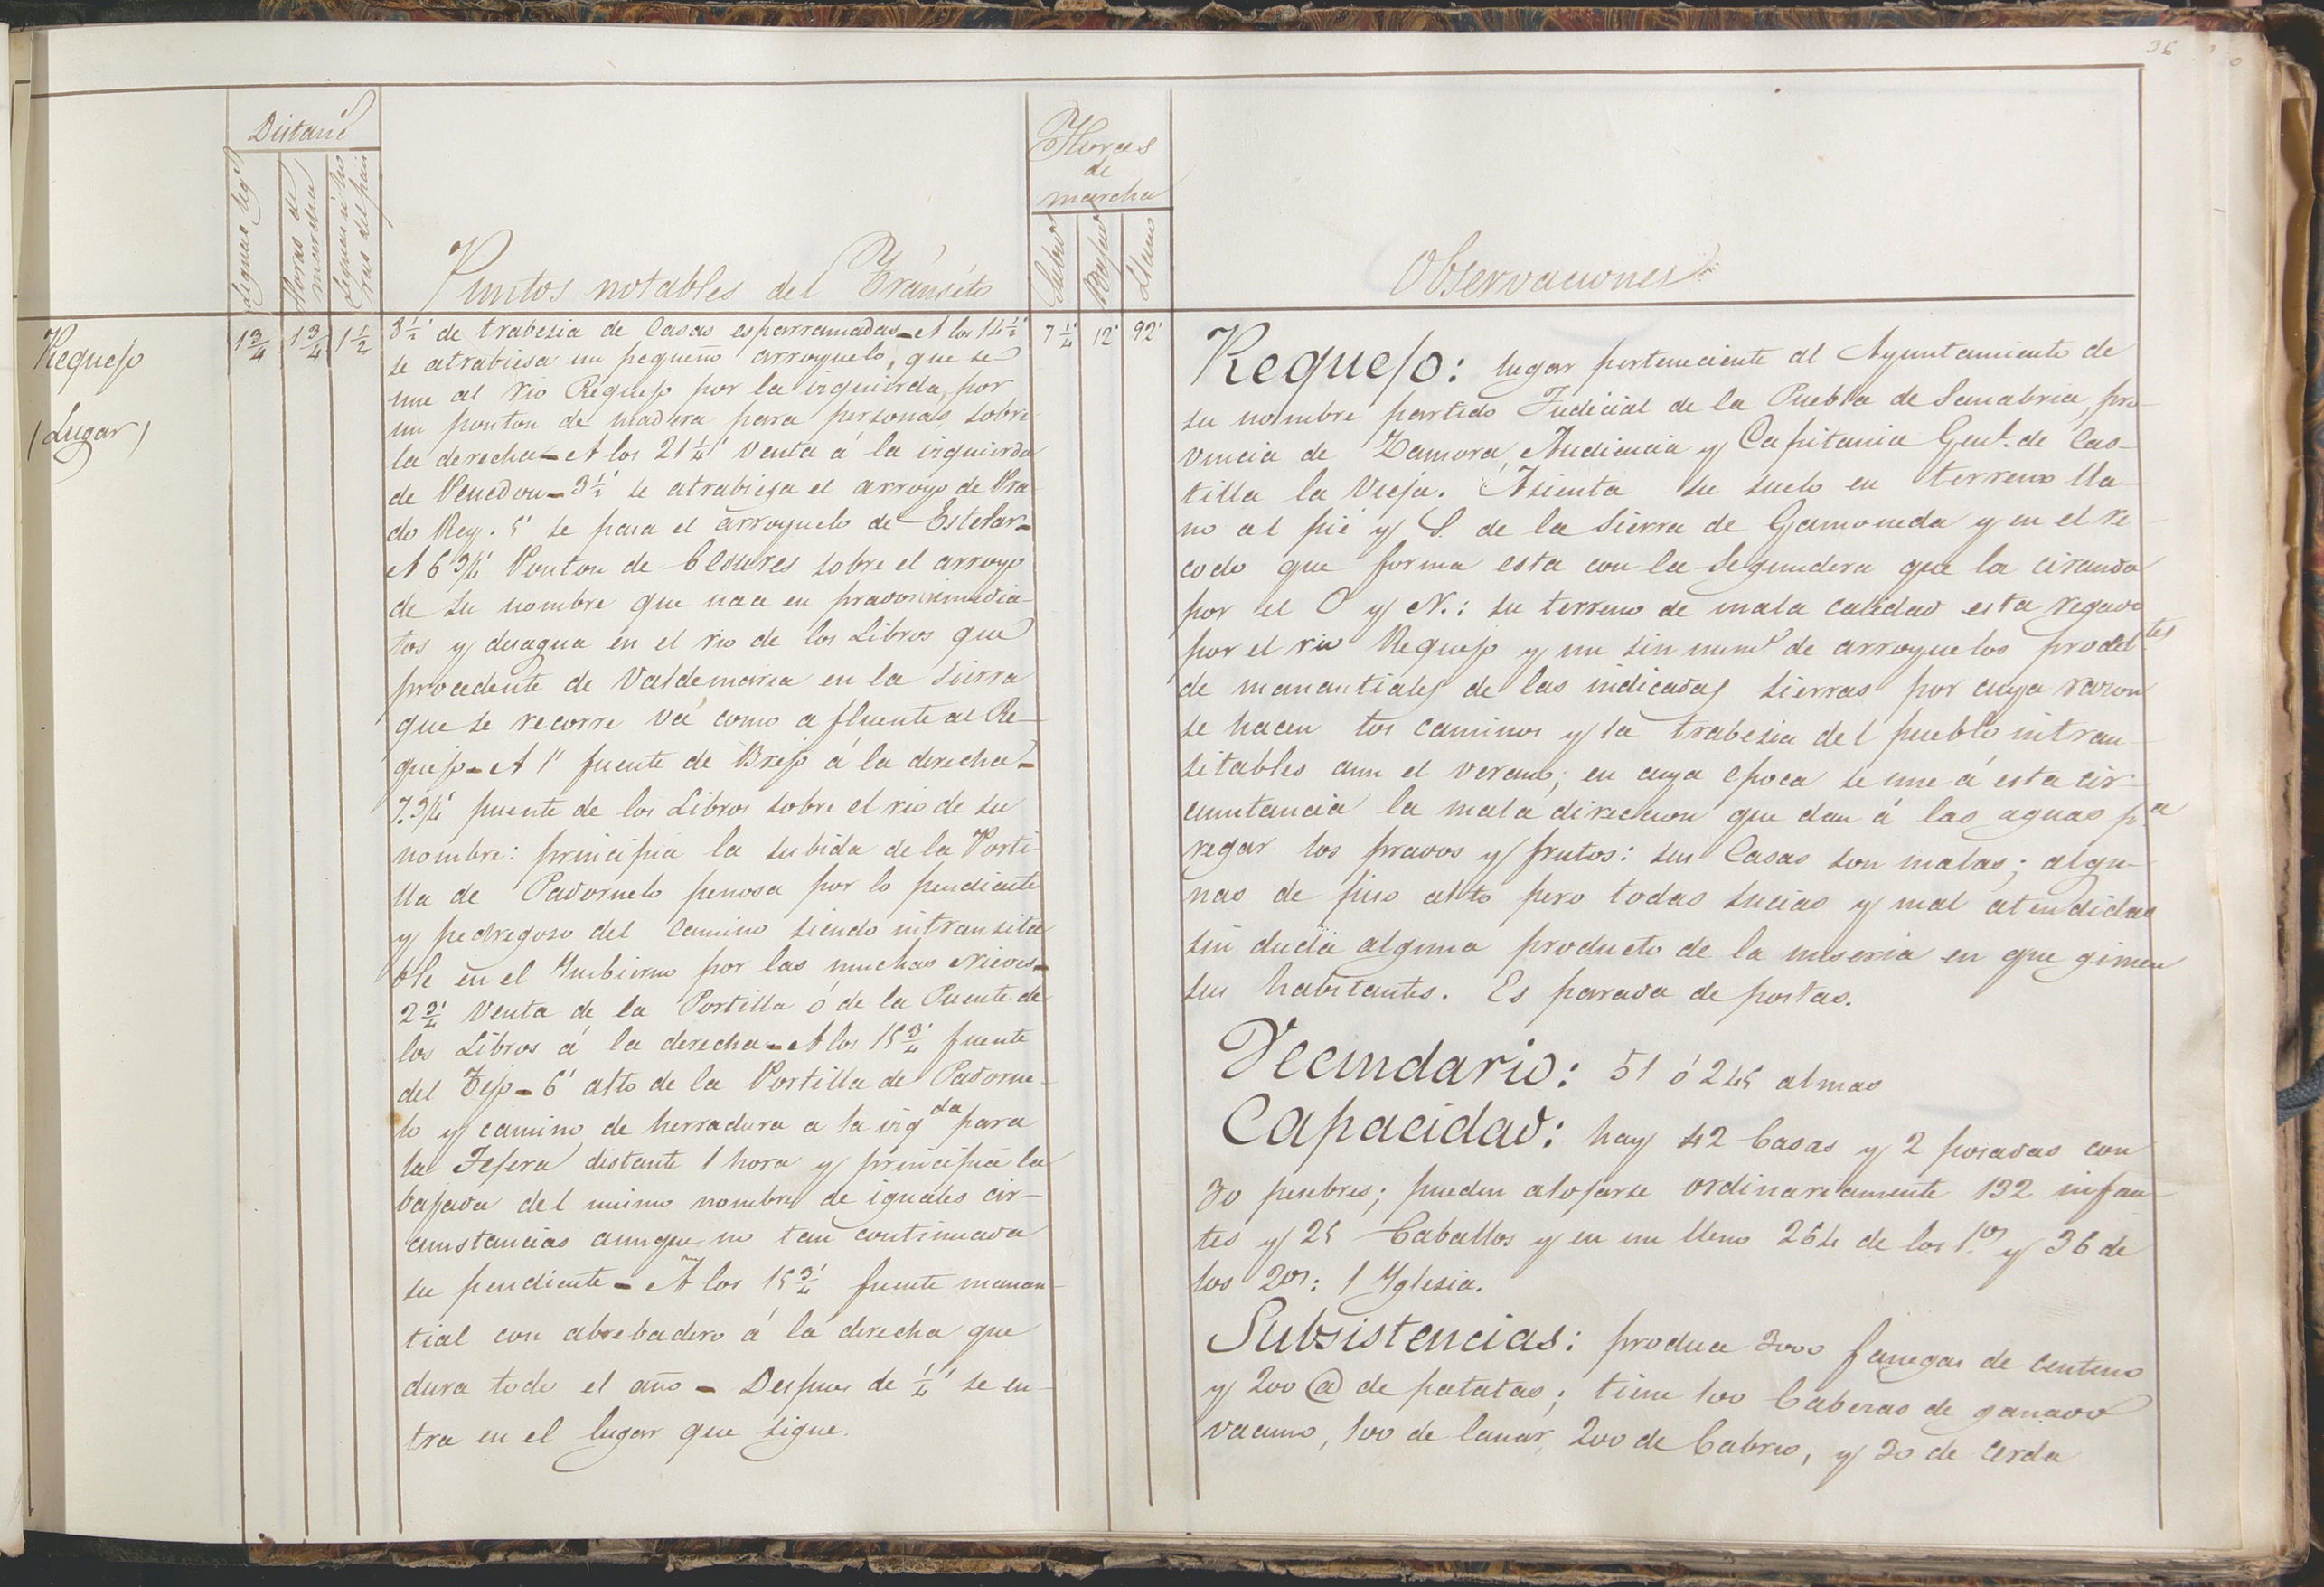 36
Distanc
Leguas leg.
Horas de marcha
Leguas ú ho
ras del pais
Puntos notables del Tránsito
Horas
de
marcha
Subida
Bajada
Llano
Observaciones
Requejo
(Lugar)
1 3/4
1 3/4
1 1/2
3 1/2' de trabesia de Casas esparramadas - A los 14 1/2'
se atrabiesa un pequeño arroyuelo, que se
une al rio Requejo por la izquierda, por
un ponton de madera para personas, sobre
la derecha - A los 21 1/4' Venta á la izquierda
de Penedon - 3 1/2' se atrabiesa el arroyo de Pra
do Rey. 5' se pasa el arroyuelo de Estelar -
A 6 3/4' Ponton de Cesures sobre el arroyo
de su nombre que nace en prados inmedia-
tos y desagua en el rio de los Libros que
procedente de Valdemaria en la Sierra
que se recorre vá como afluente al Re-
quejo - A 1' fuente de Brejo á la derecha -
7. 3/4' puente de los Libros sobre el rio de su
nombre: principia la subida de la Porti-
lla de Padornelo penosa por lo pendiente
y pedregoso del Camino siendo intransita
ble en el Imbierno por las muchas Nieves -
2 3/4' Venta de la Portilla ó de la Puente de
los Libros á la derecha - A los 15 3/4' fuente
del Tejo - 6' alto de la Portilla de Padorne-
lo y camino de herradura a la izqda para
la Tejera distante 1 hora y principia la
bajada del mismo nombre de iguales cir-
cunstancias aunque no tan continuada
su pendiente - A los 15 3/4' fuente manan-
tial con abrebadero á la derecha que
dura todo el año - Despues de 1/4' se en-
tra en el lugar que sigue.
7 1/4'
12'
92'
Requejo: lugar perteneciente al Ayuntamiento de
su nombre partido Judicial de la Puebla de Sanabria, pro-
vincia de Zamora, Audiencia y Capitania Genl. de Cas-
tilla la Vieja. Asienta su suelo en terreno lla-
no al pié y S. de la Sierra de Gamoneda y en el re
codo que forma esta con la Segundera que la circunda
por el O y N.: su terreno de mala calidad esta regado
por el rio Requejo y un sin numo. de arroyuelos prodcltes
de manantiales de las indicadas sierras por cuya razon
se hacen los caminos y la trabesia del pueblo intran-
sitables aun el verano; en cuya epoca se une á esta cir-
cunstancia la mala direccion que dan á las aguas p.a
regar los prados y frutos: sus Casas son malas; algu-
nas de piso alto pero todas sucias y mal atendidas
sin duda alguna producto de la miseria en que gimen
sus habitantes. Es parada de postas.
Vecindario: 51 ó 245 almas
Capacidad: hay 42 Casas y 2 posadas con
30 pesebres; pueden alojarse ordinariamente 132 infan-
tes y 25 Caballos y en un lleno 264 de los 1os y 36 de
los 2os: 1 Yglesia.
Subsistencias: produce 3000 fanegas de Centeno
y 200 @ de patatas; tiene 100 Cabezas de ganado
vacuno, 100 de lanar, 200 de Cabrio, y 30 de Cerda